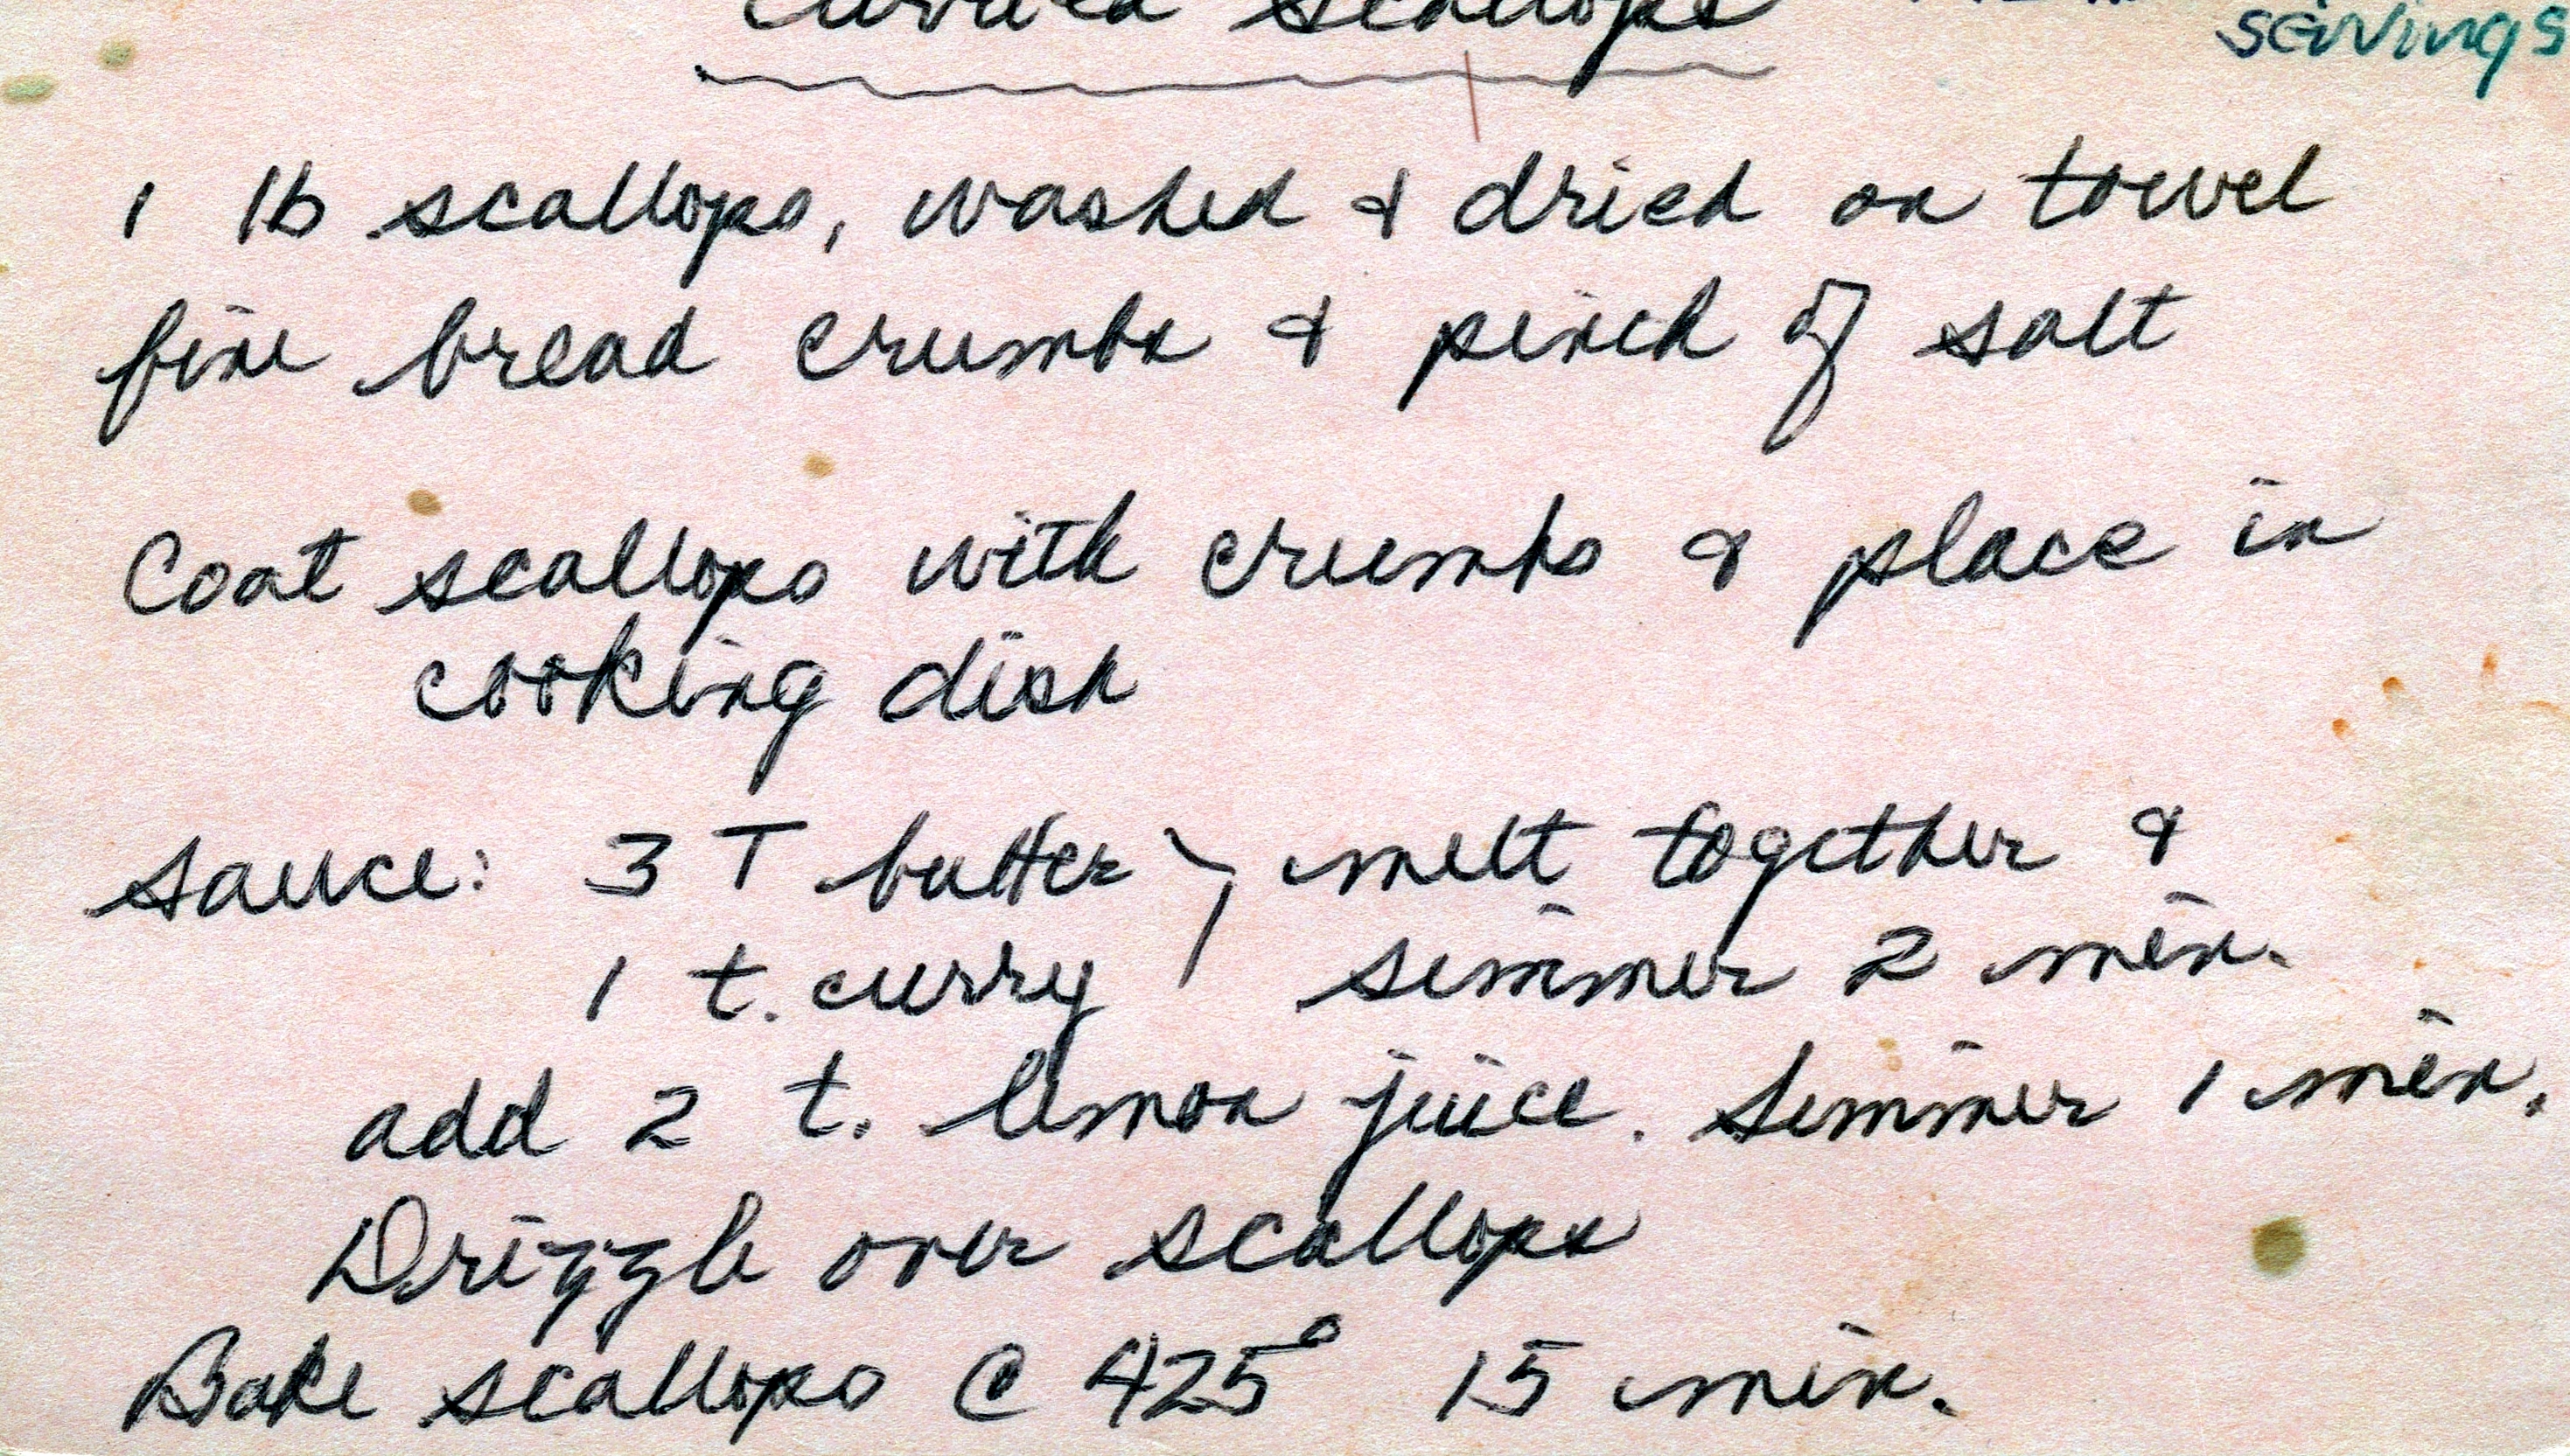 Curried Scallops
servings
1 lb scallops, washed & dried on towel
fine bread crumbs & pinch of salt
Coat scallops with crumbs & place in
cooking dish
sauce: 3 T butter } melt together &
1 t. curry simmer 2 min.
add 2 t. lemon juice. Simmer 1 min.
Drizzle over scallops
Bake scallops @ 425° 15 min.